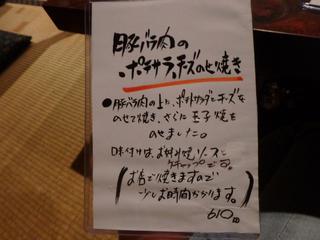 豚バラ肉の
ポテサラ、チーズのせ焼き
●豚バラ肉の上に、ポテトサラダとチーズを
のせて焼き、さらに玉子焼を
のせました。
味付けは、お好み焼ソースと
ケチャップで。
(お店で焼きますので
少しお時間かかります。)
610円